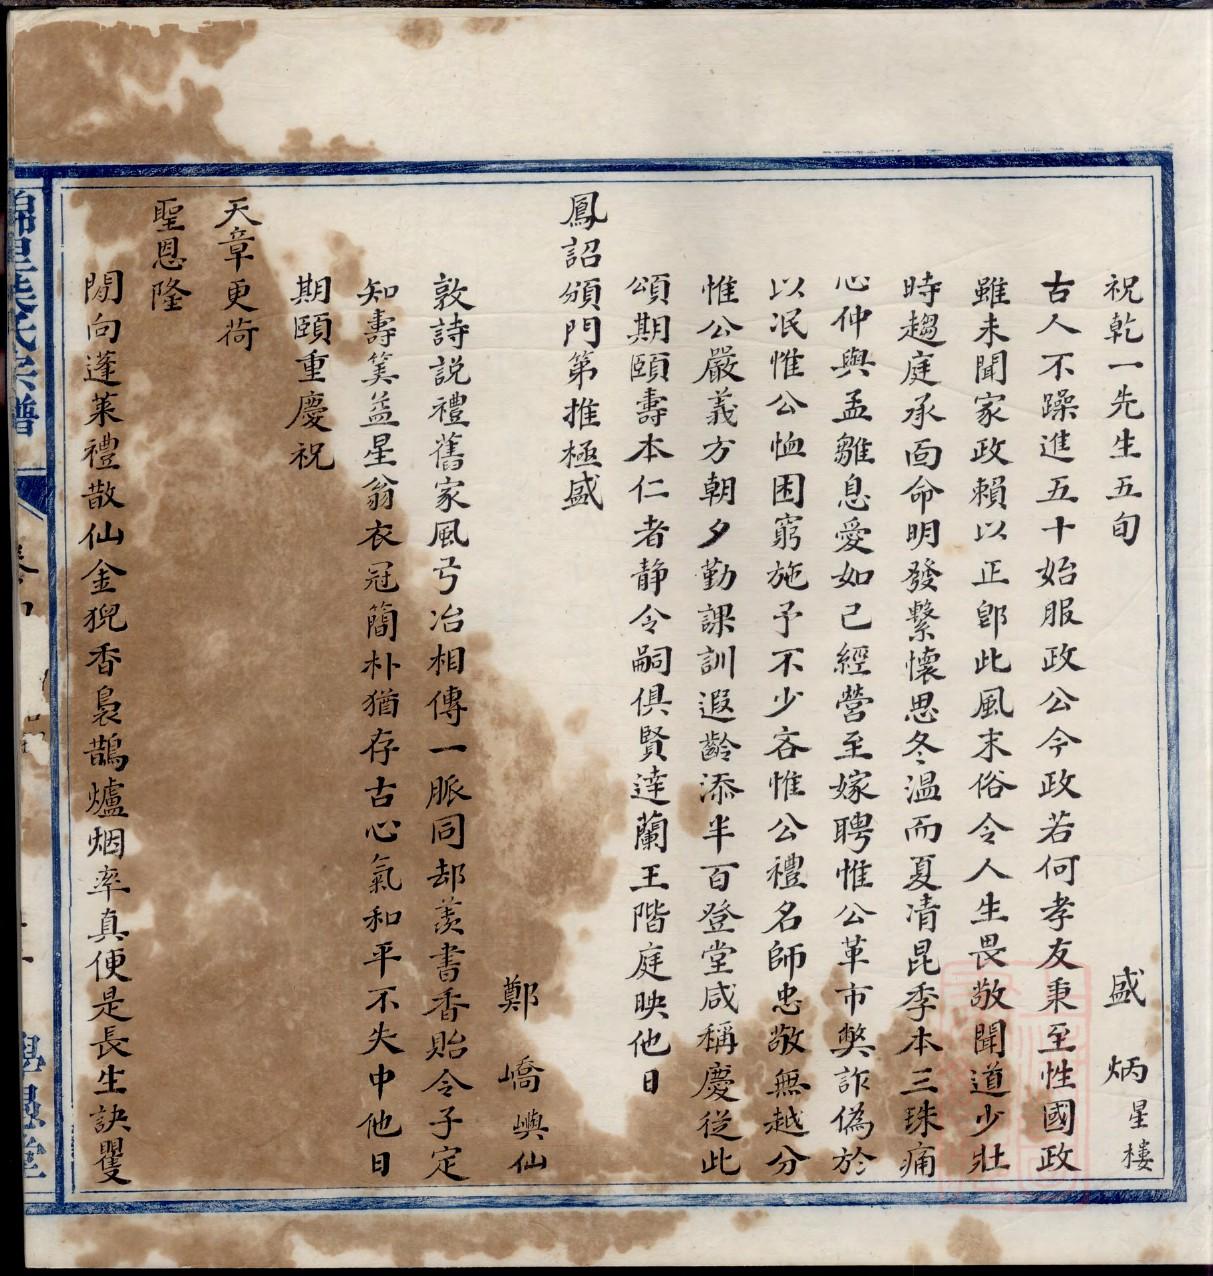 祝乾一先生五旬
盛　炳星樓
古人不躁進五十始服政公今政若何孝友秉至性國政
雖未聞家政賴以正卽此風末俗令人生畏敬聞道少壯
時趨庭承面命明發繫懷思冬温而夏清昆季本三珠痛
心仲與孟雛息愛如己經營至嫁聘惟公革市獘詐偽於
以泯惟公恤困窮施予不少吝惟公禮名師忠敬無越分
惟公嚴義方朝夕勤課訓遐齡添半百登堂咸稱慶從此
頌期頤壽本仁者静令嗣俱賢達蘭王階庭映他日
鳳詔頒門第推極盛
鄭　嶠嶼仙
敦詩説禮舊家風弓冶相傳一脈同却羨書香貽令子定
知壽筭益星翁衣冠簡朴猶存古心氣和平不失中他日
期頤重慶祝
天章更荷
聖恩隆
閒向蓬萊禮散仙金猊香裊鵲爐烟率真便是長生訣矍
氏宗譜